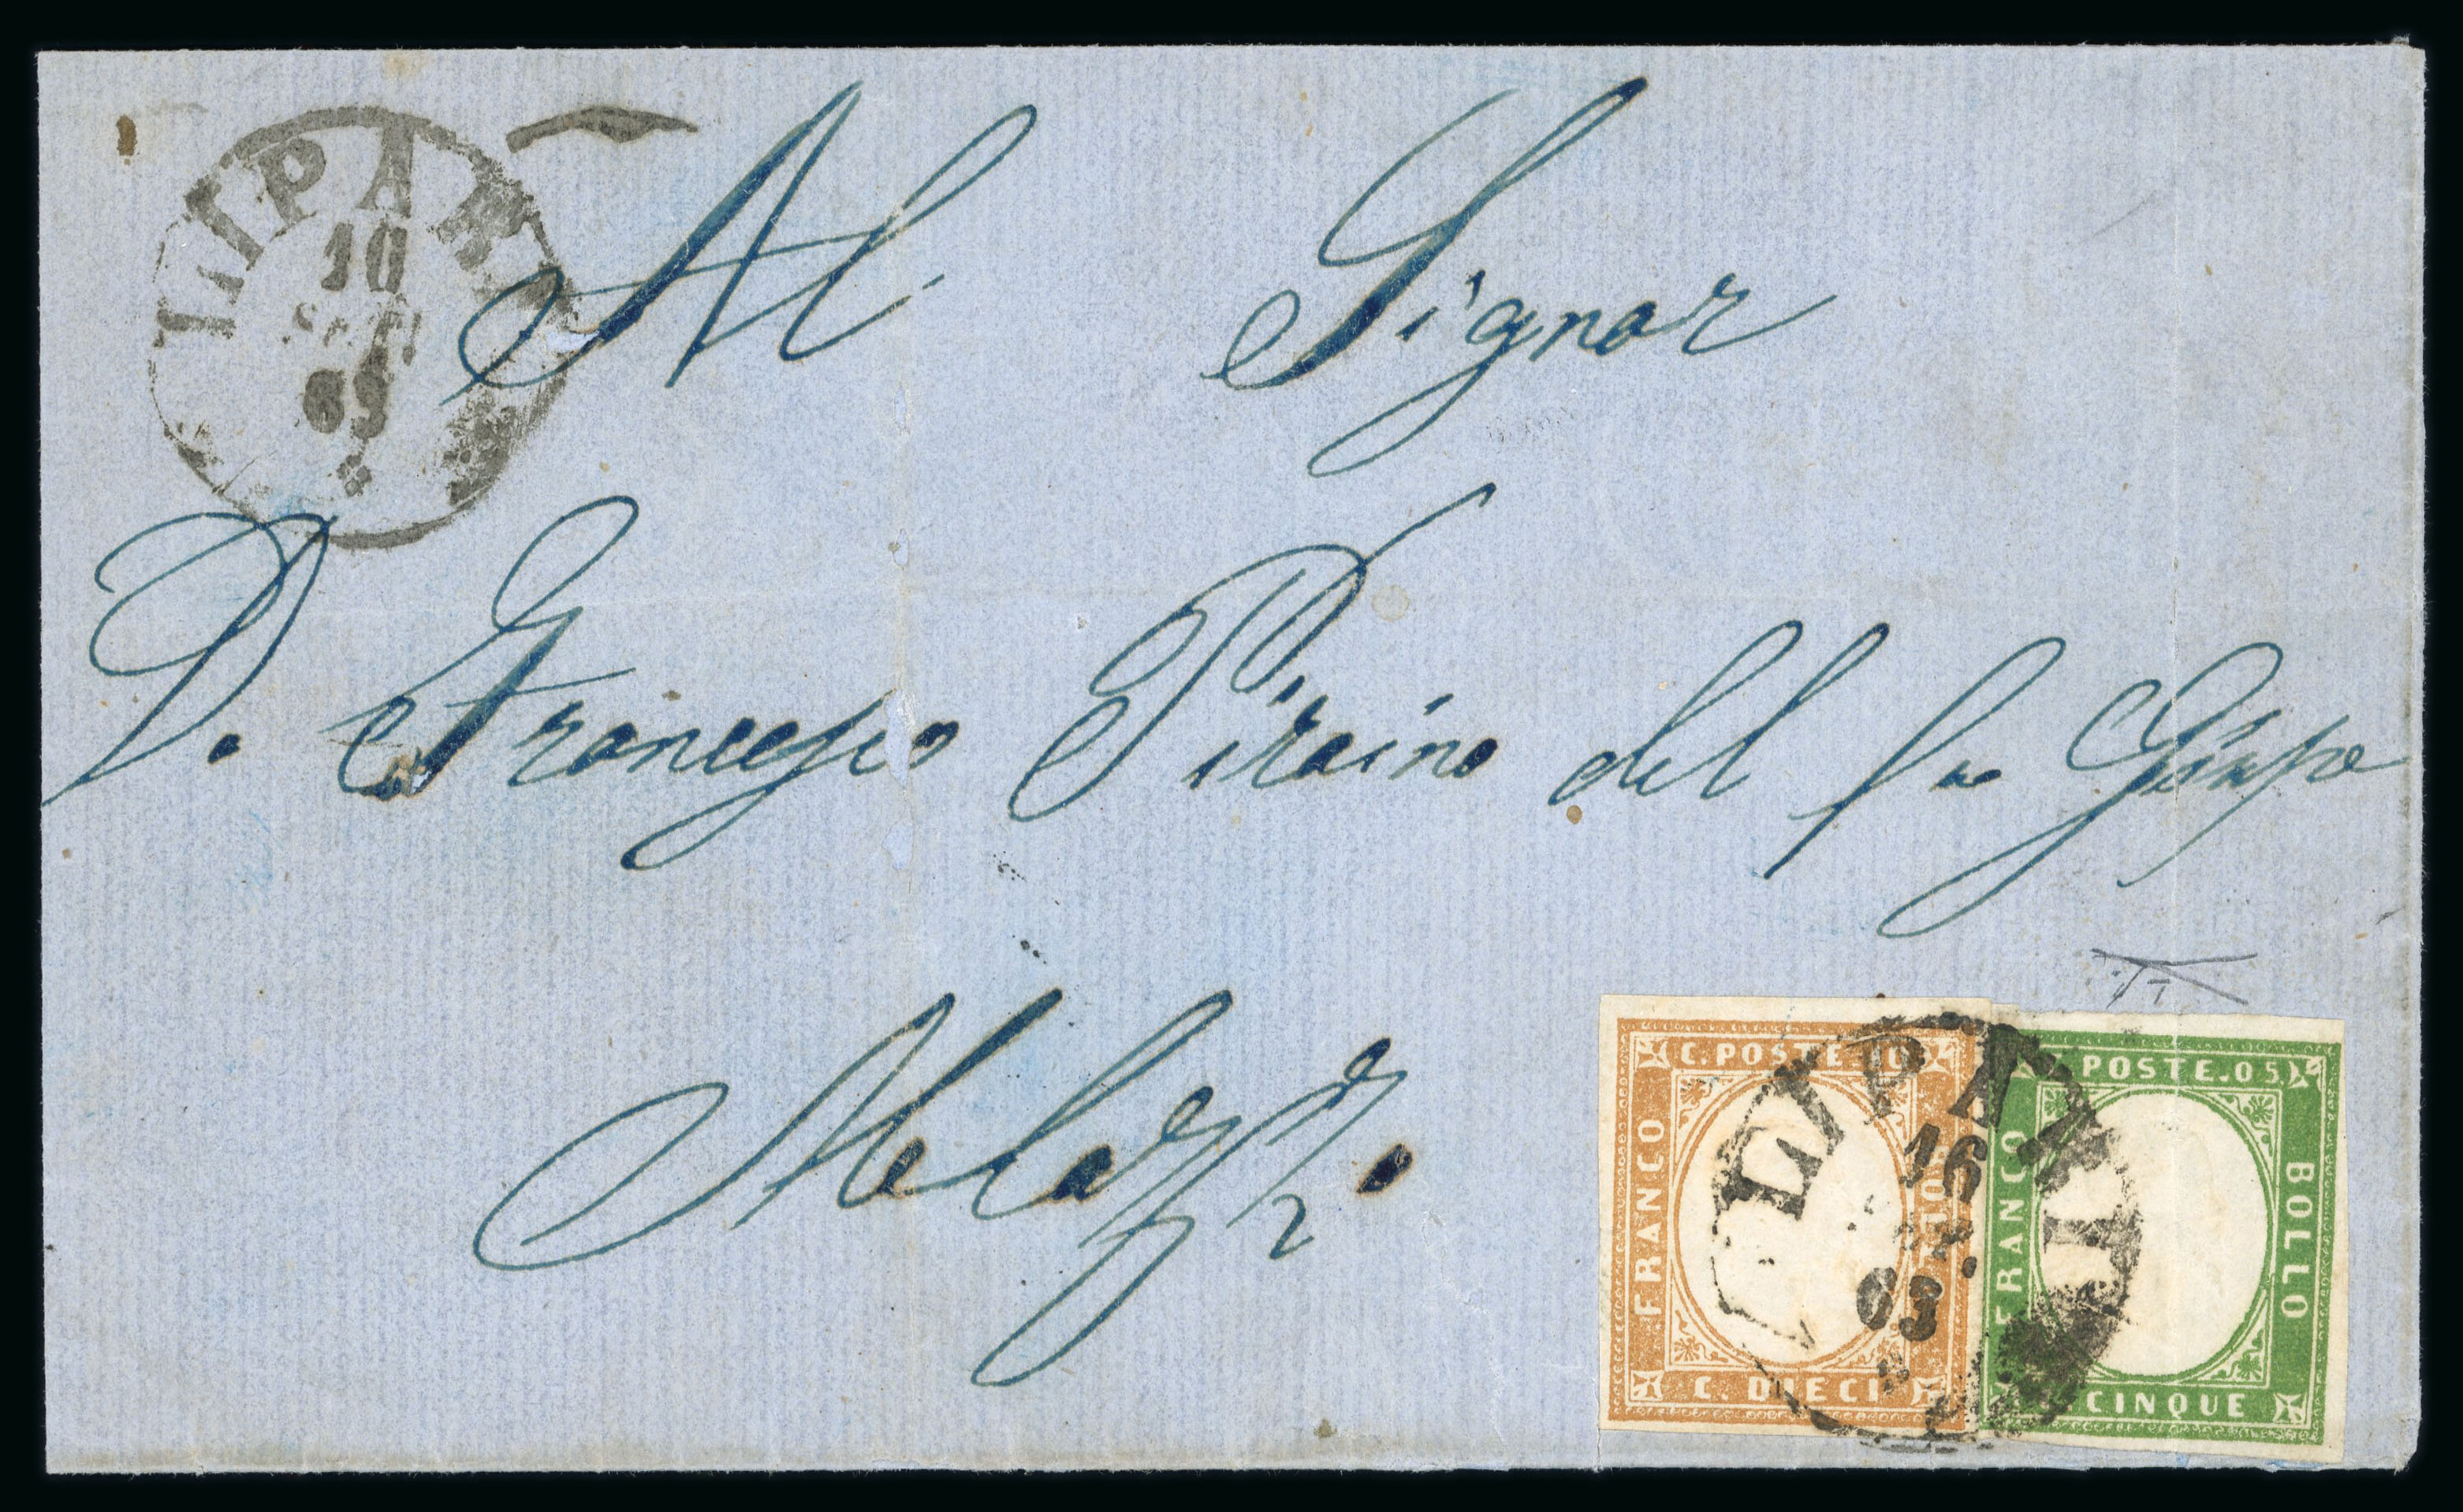 LIPARI
10
SET
63
Al Signor
D. Francesco Piraino del fu Giuspe
Melazzo
C. POSTE 10
FRANCO
BOLLO
C. DIECI
POSTE.05
FRANCO
BOLLO
CINQUE
LIPARI
16
63